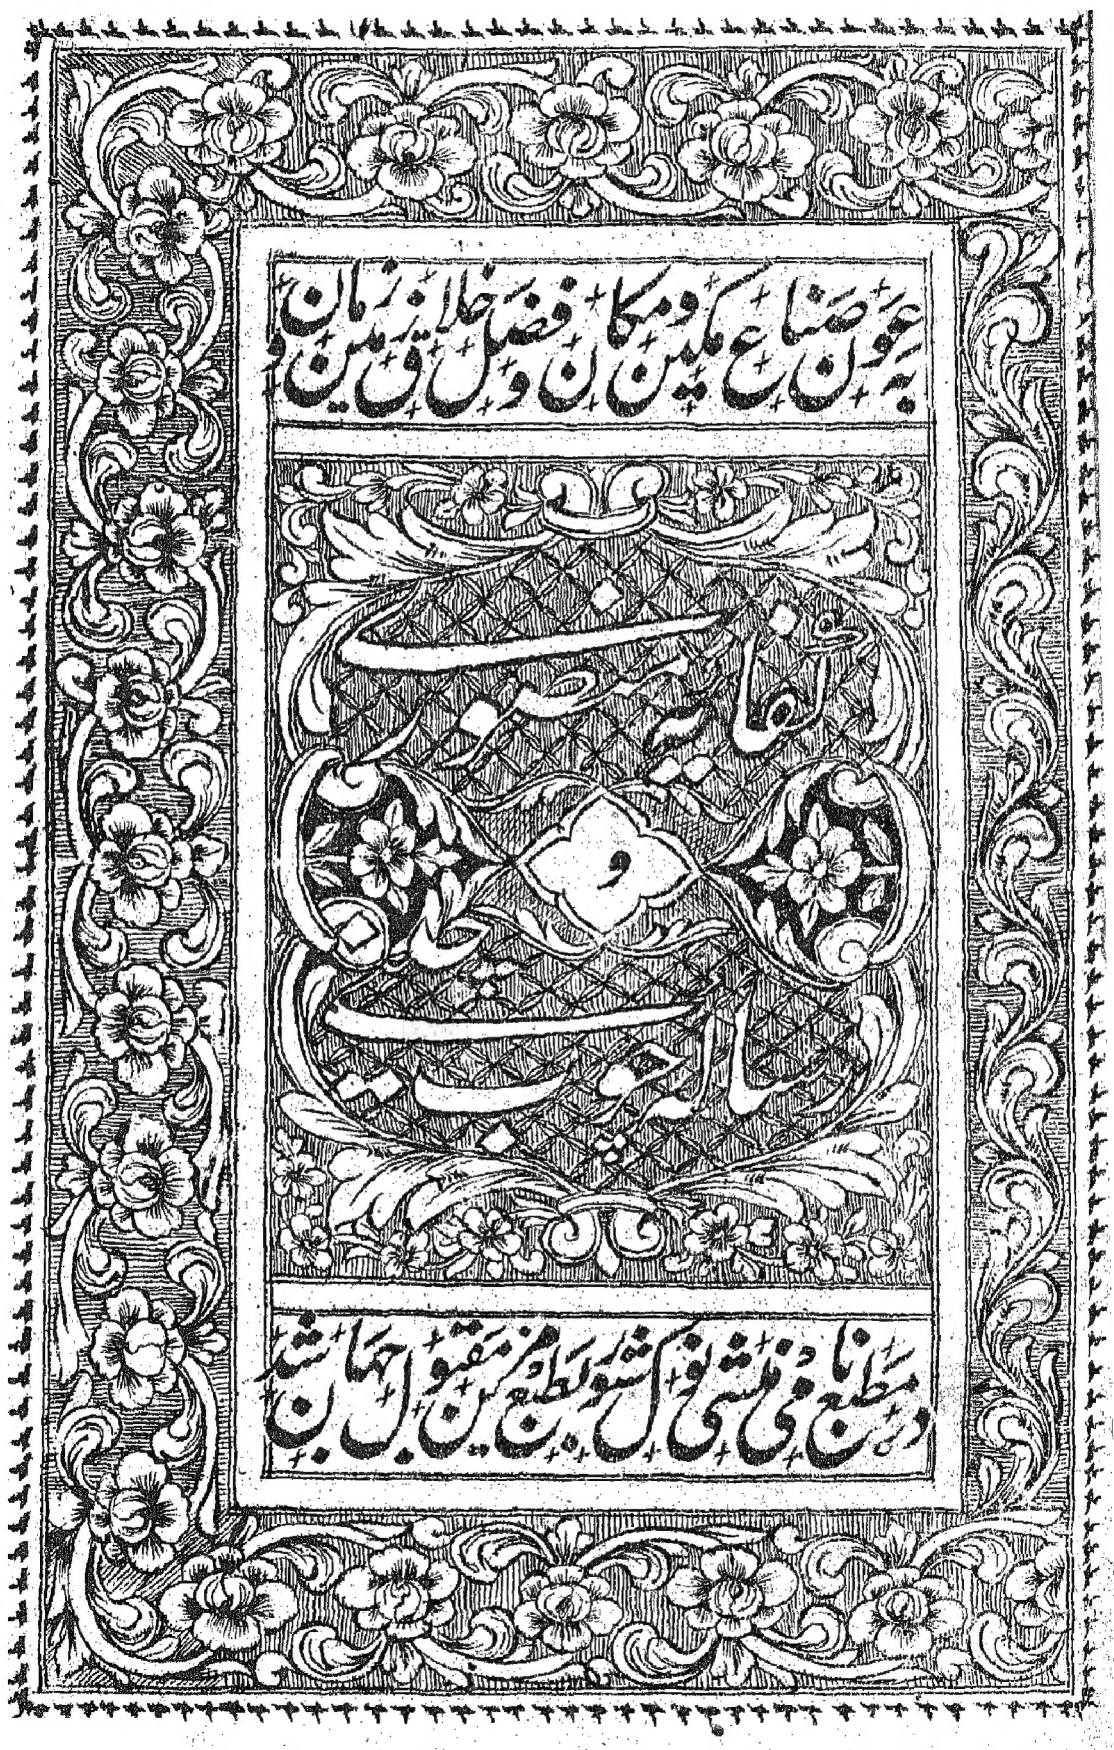 به عون صناع مکین و مکان و فضل خلاق زمین و زمان
کفایه منصوری
و
رساله چوب چینی
در مطبع نامی منشی نول کشور بطبع مزین مقبول جهان شد